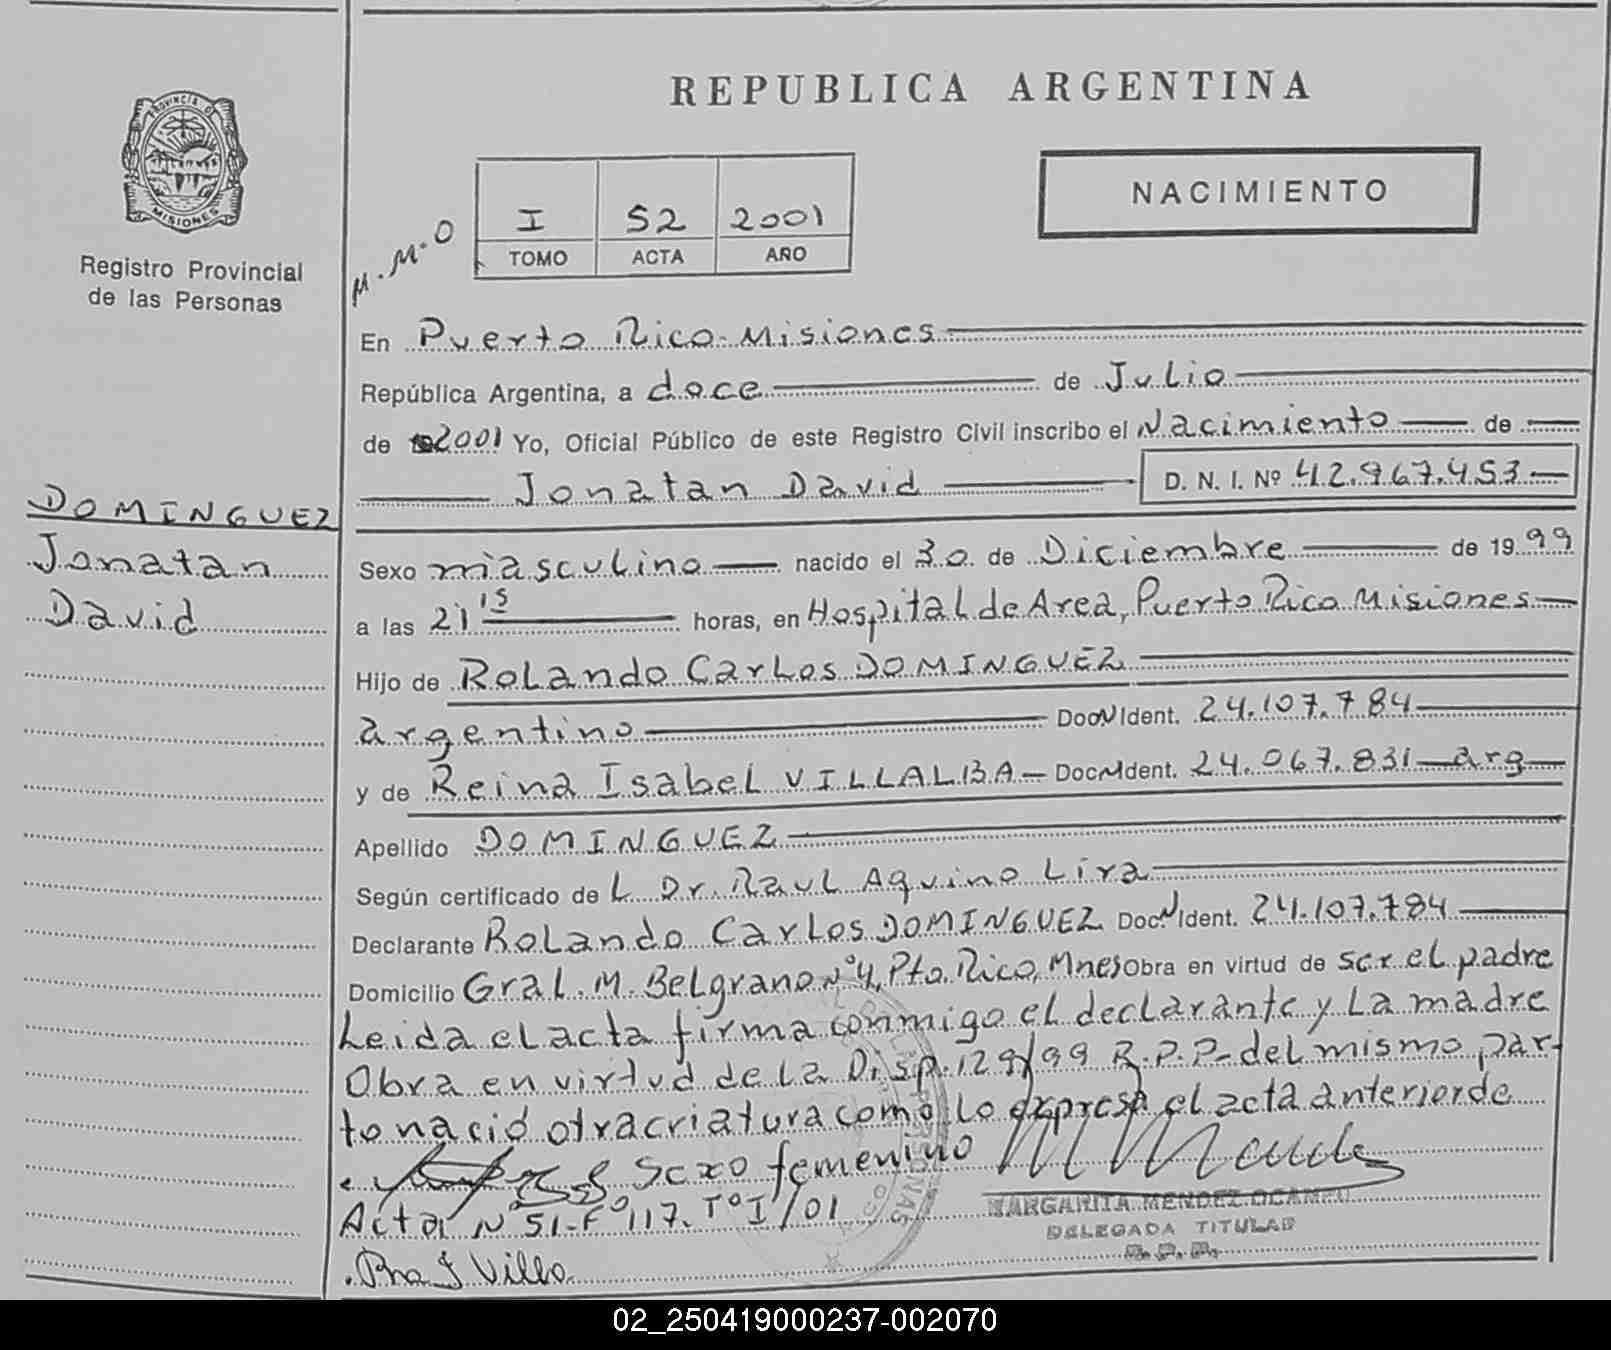 REPUBLICA ARGENTINA
PROVINCIA DE
MISIONES
Registro Provincial
de las Personas
M.M.O
I 52 2001
TOMO ACTA AÑO
NACIMIENTO
En Puerto Rico Misiones
República Argentina, a doce de Julio
de 2001 Yo, Oficial Público de este Registro Civil inscribo el Nacimiento de
Jonatan David D. N. I. Nº 42.967.453
DOMINGUEZ
Jonatan
David
Sexo masculino nacido el 30 de Diciembre de 1999
a las 21 15 horas, en Hospital de Area, Puerto Rico Misiones
Hijo de Rolando Carlos DOMINGUEZ
argentino Doc N Ident. 24.107.784
y de Reina Isabel VILLALBA Doc N Ident. 24.067.831 arg
Apellido DOMINGUEZ
Según certificado de L Dr. Raul Aquino Lira
Declarante Rolando Carlos DOMINGUEZ Doc N Ident. 24.107.784
Domicilio Gral. M. Belgrano Nº 4, Pto. Rico, Mnes Obra en virtud de ser el padre
Leida el acta firma conmigo el declarante y La madre
Obra en virtud de la Disp. 129/99 R.P.P. del mismo par-
to nació otra criatura como lo expresa el acta anterior de
Sexo femenino
Acta Nº 51-Fº 117. Tº I/01
MARGARITA MENDEZ OCAMPO
DELEGADA TITULAR
R.P.P.
02_250419000237-002070